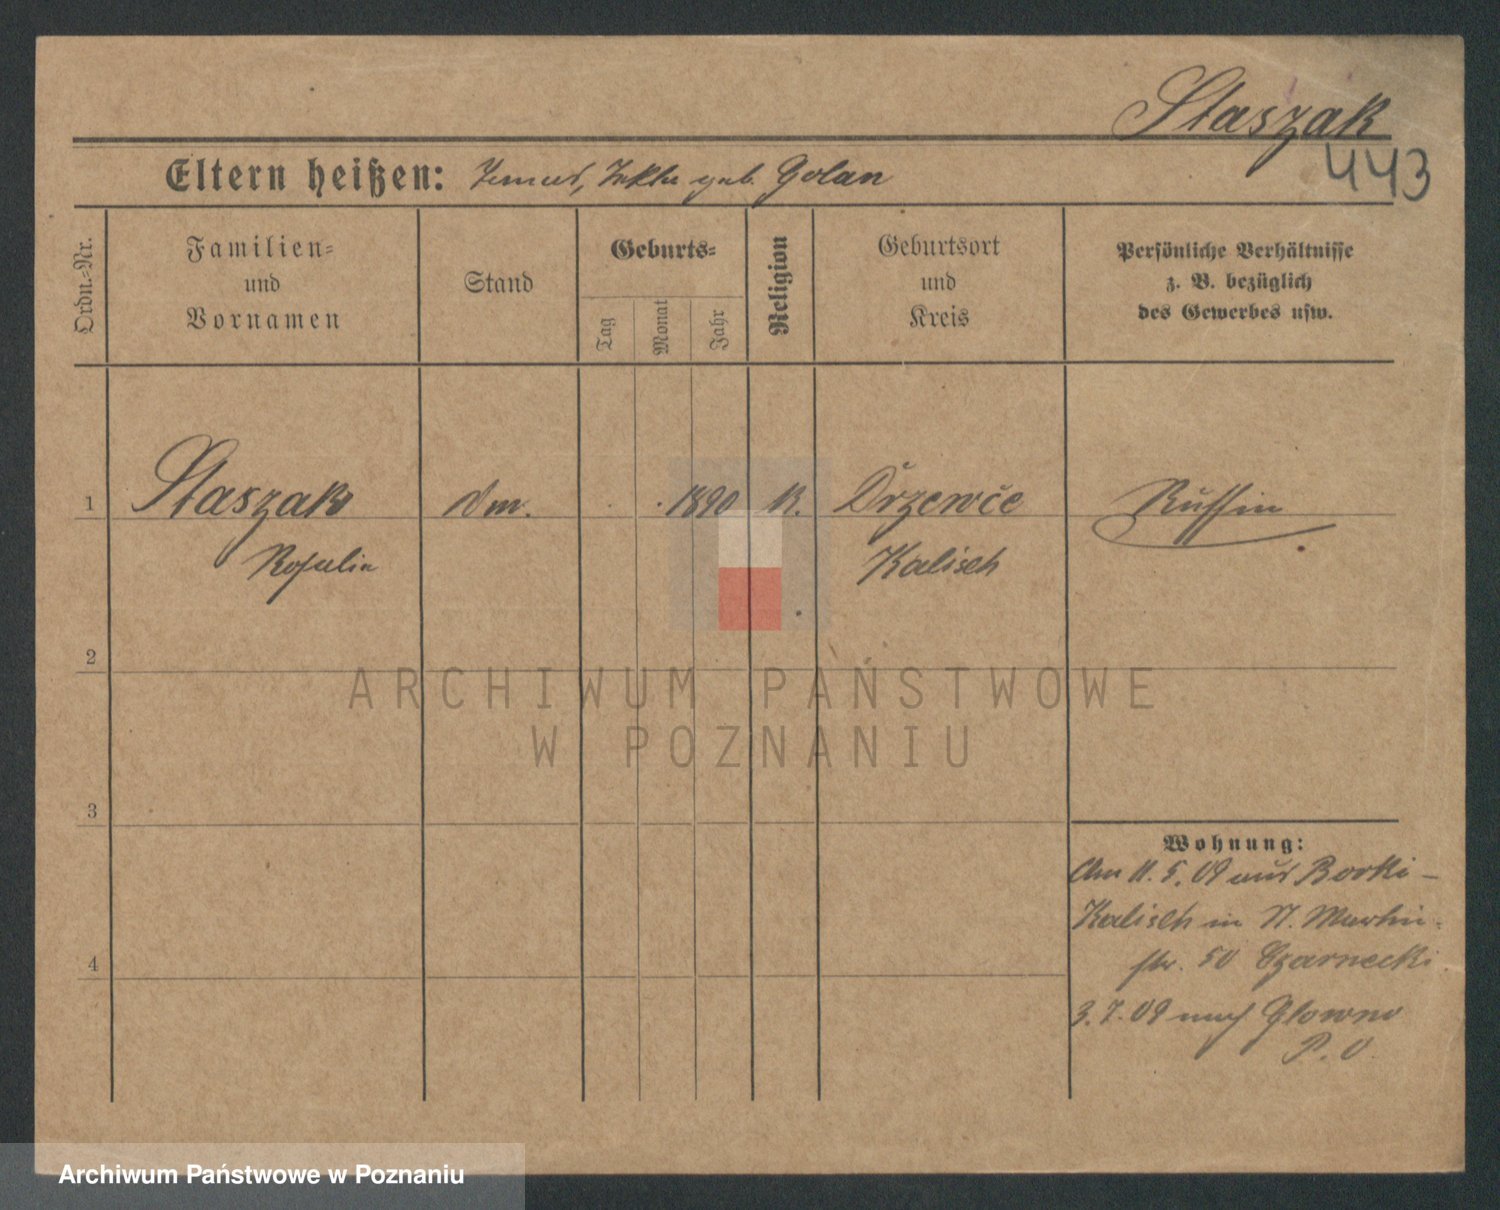 Staszak
443
Eltern heißen: geb. Golan
Ordn.-Nr.
Familien-
und
Vornamen
Stand
Geburts-
Tag
Monat
Jahr
Religion
Geburtsort
und
Kreis
Persönliche Verhältnisse
z. B. bezüglich
des Gewerbes usw.
1
Staszak
1890
K.
Drzewce
Russin
Rosalia
Kalisch
2
ARCHIWUM PAŃSTWOWE
W POZNANIU
3
Wohnung:
Am 11.5.09 aus Borki-
Kalisch in St. Martin-
str. 50 Czarnecki
4
3.7.09 nach Glowno
P. O.
Archiwum Państwowe w Poznaniu